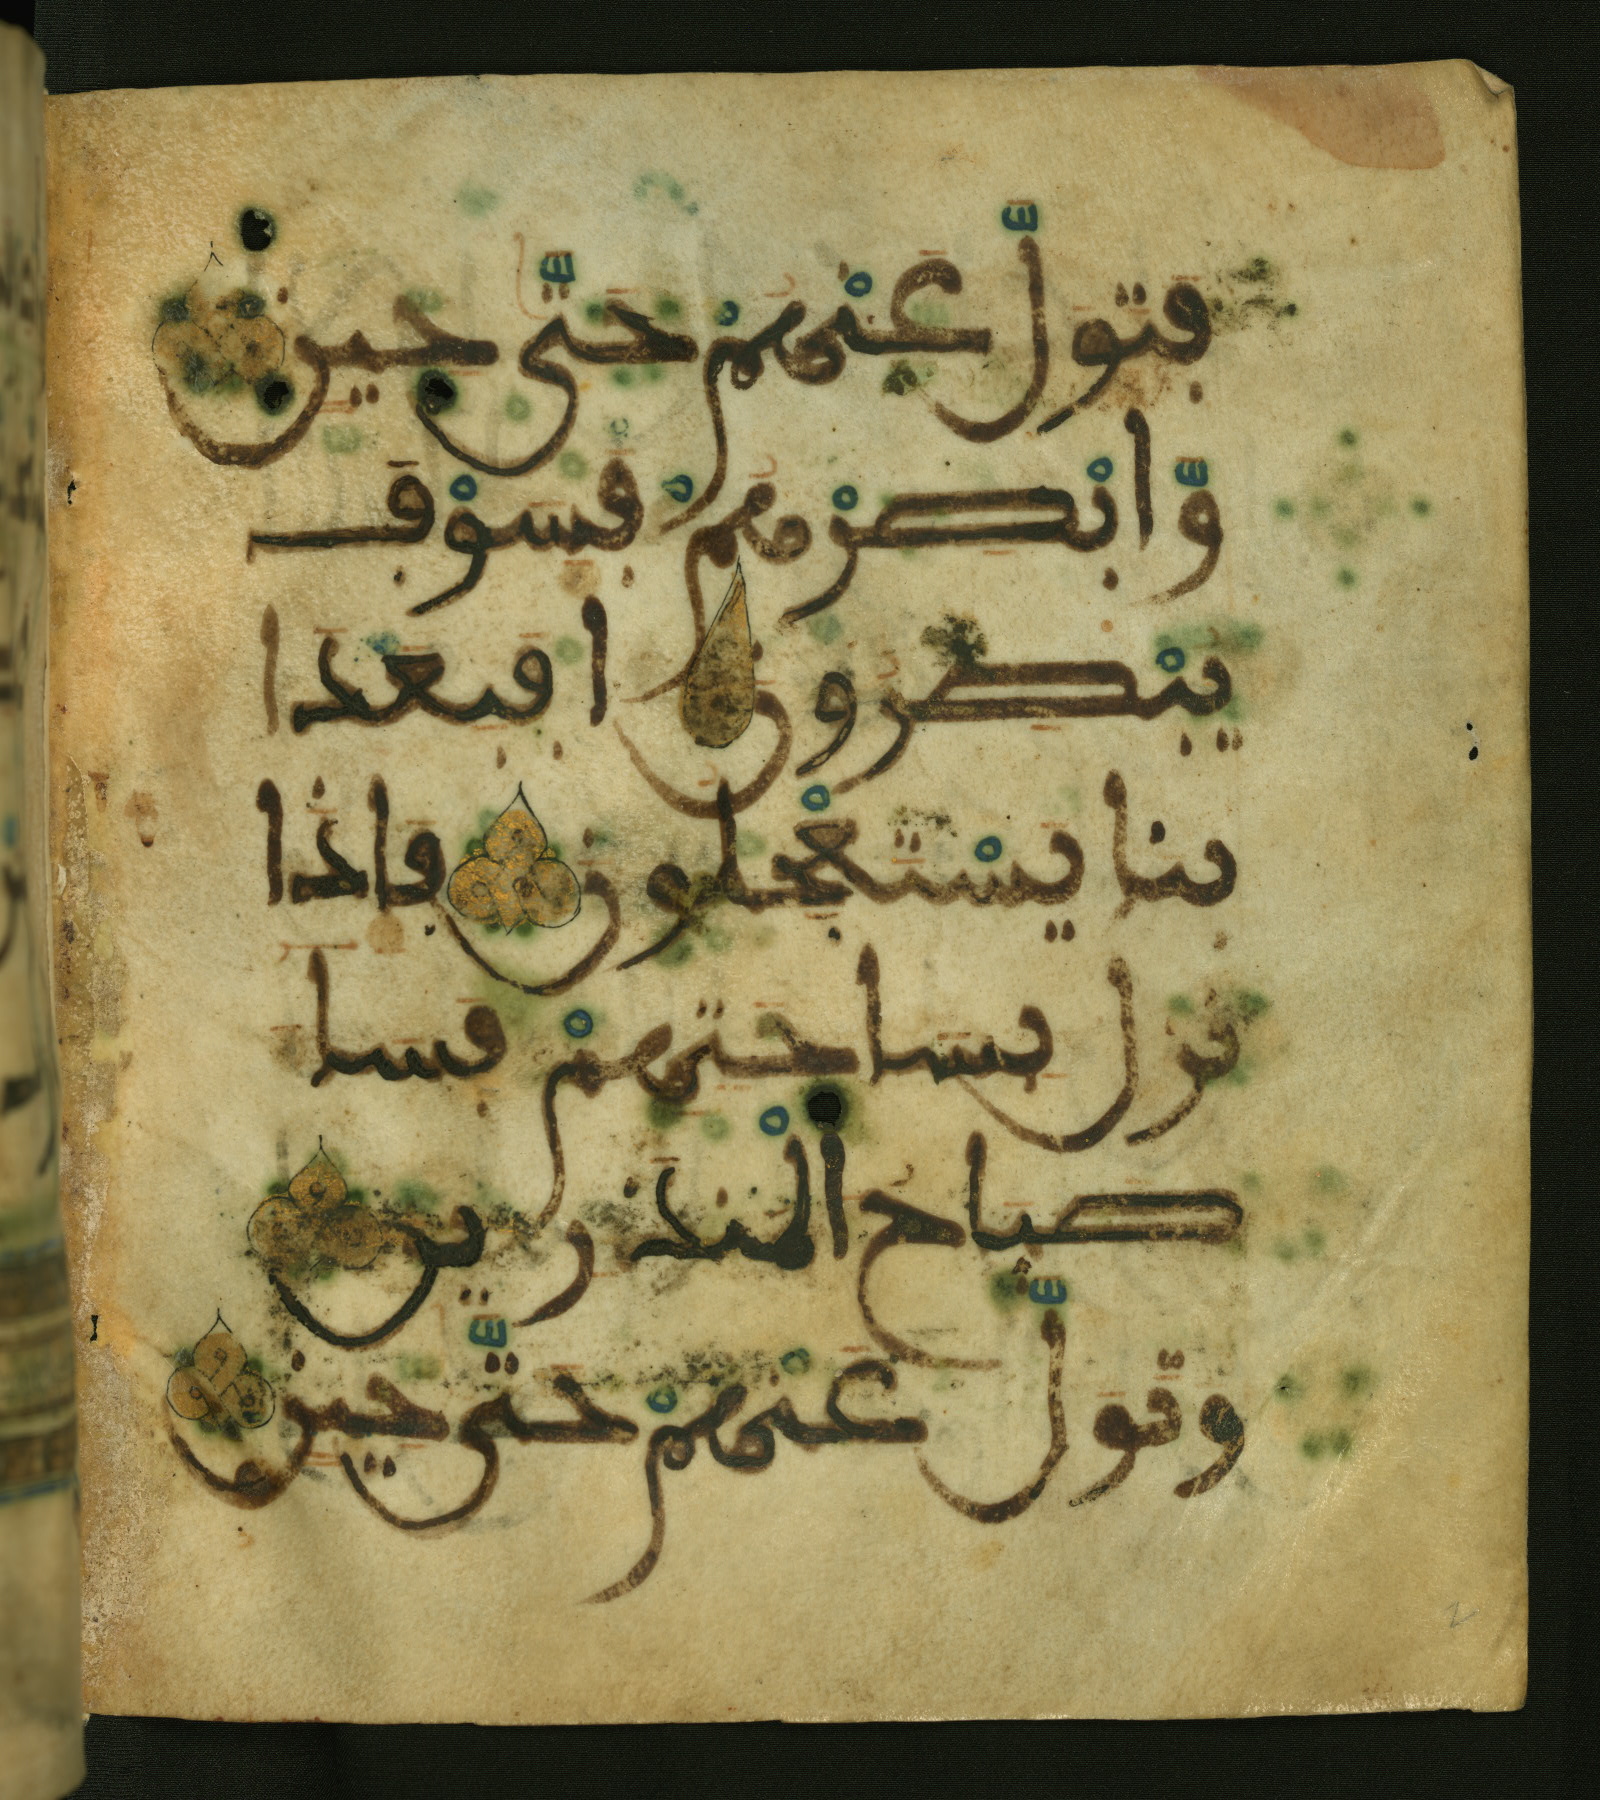 فَتَوَلَّ عَنْهُمْ حَتَّىٰ حِينٍ
وَّأَبْصِرْهُمْ فَسَوْفَ
يُبْصِرُونَ أَفَبِعَذَا
بِنَا يَسْتَعْجِلُونَ فَإِذَا
نَزَلَ بِسَاحَتِهِمْ فَسَا
صَبَاحُ الْمُنذَرِينَ
وَتَوَلَّ عَنْهُمْ حَتَّىٰ حِينٍ
2